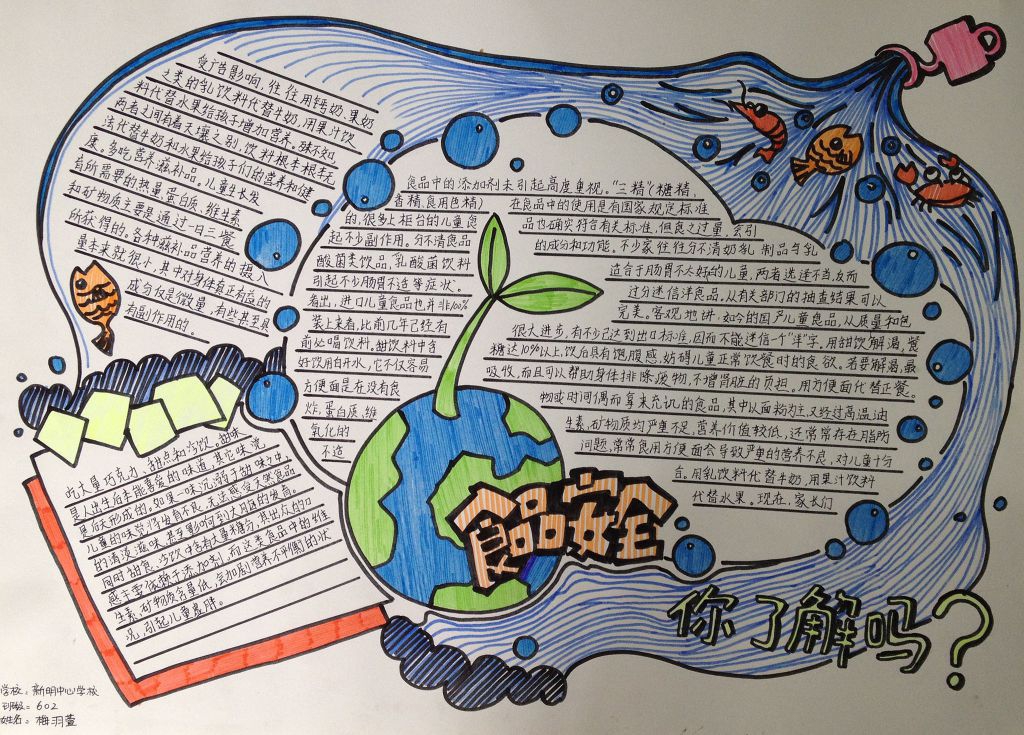 受广告影响，往往用钙奶、果奶
之类的乳饮料代替牛奶，用果汁饮
料代替水果给孩子增加营养。殊不知，
两者之间有着天壤之别，饮料根本根无
法代替牛奶和水果给孩子们的营养和健
康。多吃营养滋补品。儿童生长发
育所需要的热量、蛋白质、维生素
和矿物质主要是通过一日三餐
所获得的。各种滋补品营养的摄入
量本来就很小，其中对身体真正有益的
成分仅是微量，有些甚至具
有副作用的。
食品中的添加剂未引起高度重视。"三精"(糖精、
香精、食用色精) 在食品中的使用是有国家规定标准
的，很多上柜台的儿童食 品也确实符合有关标准，但食之过量，会引
起不少副作用。分不清食品 的成分和功能。不少家往往分不清奶乳制品与乳
酸菌类饮品，乳酸菌饮料 适合于肠胃不太好的儿童，两者选择不当，反而
引起不少肠胃不造等症状。 过分迷信洋食品。从有关部门的抽查结果可以
看出，进口儿童食品也并非100% 完美。客观地讲，如今的国产儿童食品，从质量和包
装上来看，比前几年已经有 很大进步，有不少已达到出口标准，因而不能迷信一个"洋"字。用甜饮解渴，餐
前必喝饮料。甜饮料中含 糖达10%以上，饮后具有饱腹感，妨碍儿童正常饮餐时的食欲。若要解渴，最
好饮用白开水，它不仅容易 吸收，而且可以帮助身体排除废物，不增肾脏的负担。用方便面代替正餐。
方便面是在没有食 物或时间偶而拿来充饥的食品，其中以面粉为主，又经过高温油
炸，蛋白质、维 生素、矿物质均严重不足，营养价值较低，还常常存在脂肪
氧化的 问题，常常食用方便面会导致严重的营养不良，对儿童十分
不造 合。用乳饮料代替牛奶，用果汁饮料
代替水果。现在，家长们
吃大量巧克力、甜点和冷饮。甜味
是人出生后本能喜爱的味道，其它味觉
是后天形成的。如果一味沉溺于甜味之中，
儿童的味觉将发育不良，无法感受天然食品
的清淡滋味，甚至影响到大脑的发育。
同时甜食、冷饮中含有大量糖分，其出众的口
感主要依赖于添加剂，而这类食品中的维
生素、矿物质含量低，会加剧营养不平衡的状
况，引起儿童虚胖。
食品安全
你了解吗？
学校：新明中心学校
班级：602
姓名：梅羽萱